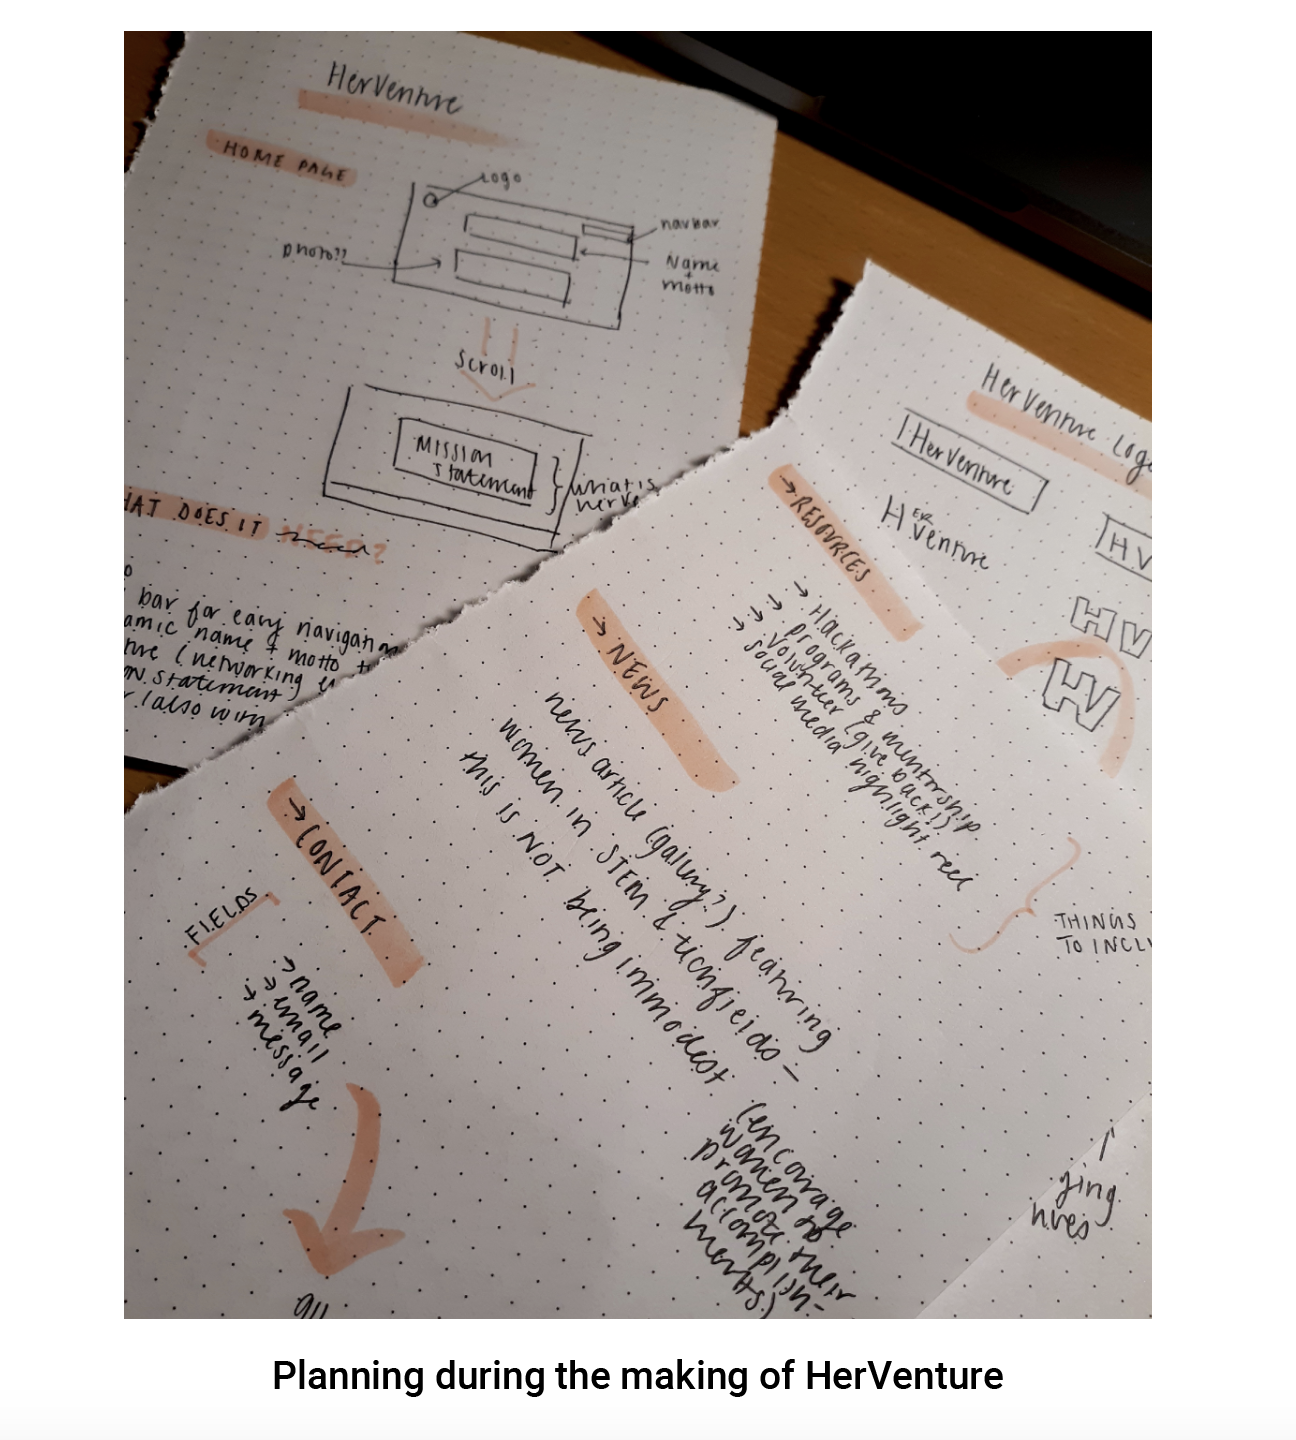 HerVenture
HOME PAGE
Logo
navbar
photo??
Name
+
motto
scroll
Mission
statement
what is
herve
HAT DOES IT need NEED?
bar for easy navigation
amic name & motto
(networking
on statement
(also with
HerVenture Logo
HerVenture
HER
Venture
HV
HV
HV
→ RESOURCES
→ Hackathons
→ programs & mentorship
→ volunteer (give back!)
→ social media highlight reel
THINGS
TO INCLU
→ NEWS
news article (gallery?) featuring
women in STEM & tech fields –
this is NOT being immodest
(encourage
women to
promote their
accomplish-
ments)
→ CONTACT
FIELDS
→ name
→ email
→ message
all
ging
Planning during the making of HerVenture